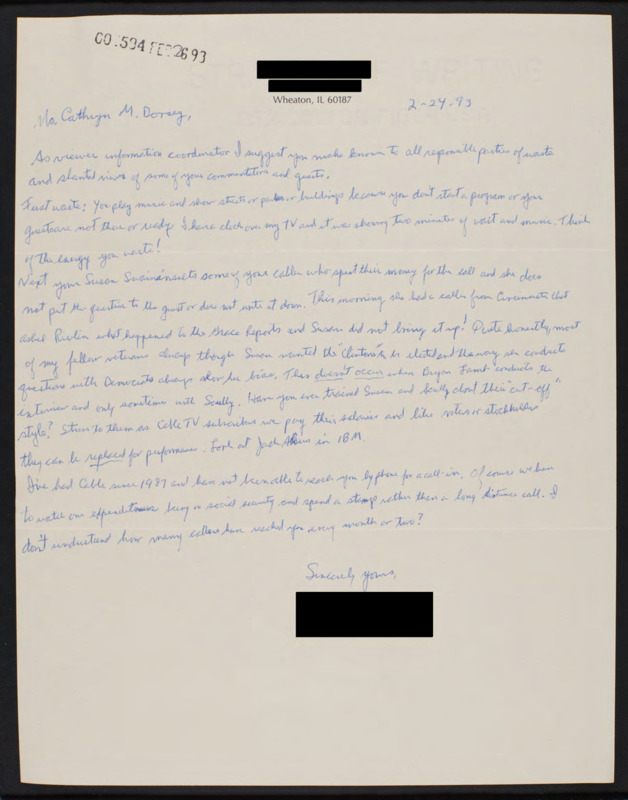 001534 FEB 26 93
Wheaton, IL 60187
2-24-93
Ms. Cathryn M. Dorsey,
As viewer information coordinator I suggest you make known to all responsible parties of waste
and slanted views of some of your commentators and guests.
First waste: You play music and show streets or parks or buildings because you don't start a program or your
guests are not there or ready. I have clock over my TV and it was showing two minutes of wait and music. Think
of the energy you waste!
Next your Susan Swain insults some of your callers who spent their money for the call and she does
not put the question to the guest or does not write it down. This morning she had a caller from Cincinnati that
asked Rivlin what happened to the Grace Reports and Susan did not bring it up! Quite honestly, most
of my fellow veterans always thought Susan wanted the "Clintons" to be elected and the way she conducts
questions with Democrats always show her bias. This doesn't occur when Bryan Lamb conducts the
interview and only sometimes with Scully. Have you ever trained Susan and Scully about their "cut-off"
style? Stress to them as Cable TV subscribers we pay their salaries and like voters or stockholders
they can be replaced for performance. Look at Jack Akers in IBM.
I've had Cable since 1987 and have not been able to reach you by phone for a call-in. Of course we have
to watch our expenditures being on social security and spend a stamp rather than a long distance call. I
don't understand how many callers have reached you every month or two?
Sincerely yours,